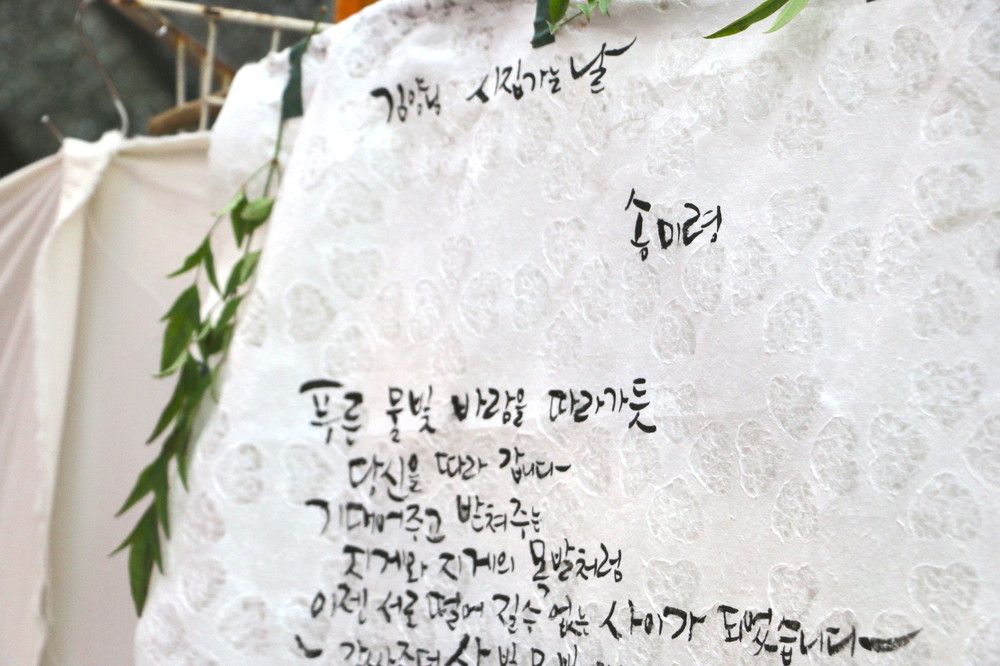 김양님 시집가는 날
송미령
푸른 물빛 바람을 따라가듯
당신을 따라 갑니다
기대어주고 받쳐주는
지게와 지게의 목발처럼
이젠 서로 떨어 질수 없는 사이가 되었습니다